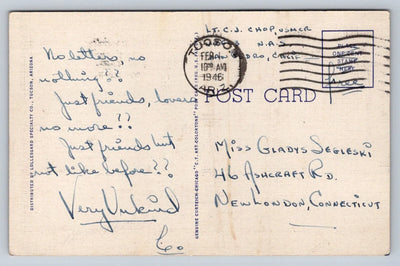 LT. C.J. CHOP, USMCR
N.A.S.
TUCSON
FEB
10 AM
1946
ARIZ.
PLACE
ONE CENT
STAMP
HERE
Free
POST CARD
No letters, no
nothing??
Just friends, lovers
no more??
Just friends but
not like before??
Very Unkind
Co.
Miss Gladys Segleski
46 Ashcraft Rd.
New London, Connecticut
DISTRIBUTED BY LOLLESGARD SPECIALTY CO., TUCSON, ARIZONA
GENUINE CURTEICH-CHICAGO "C.T. ART-COLORTONE" POST CARD